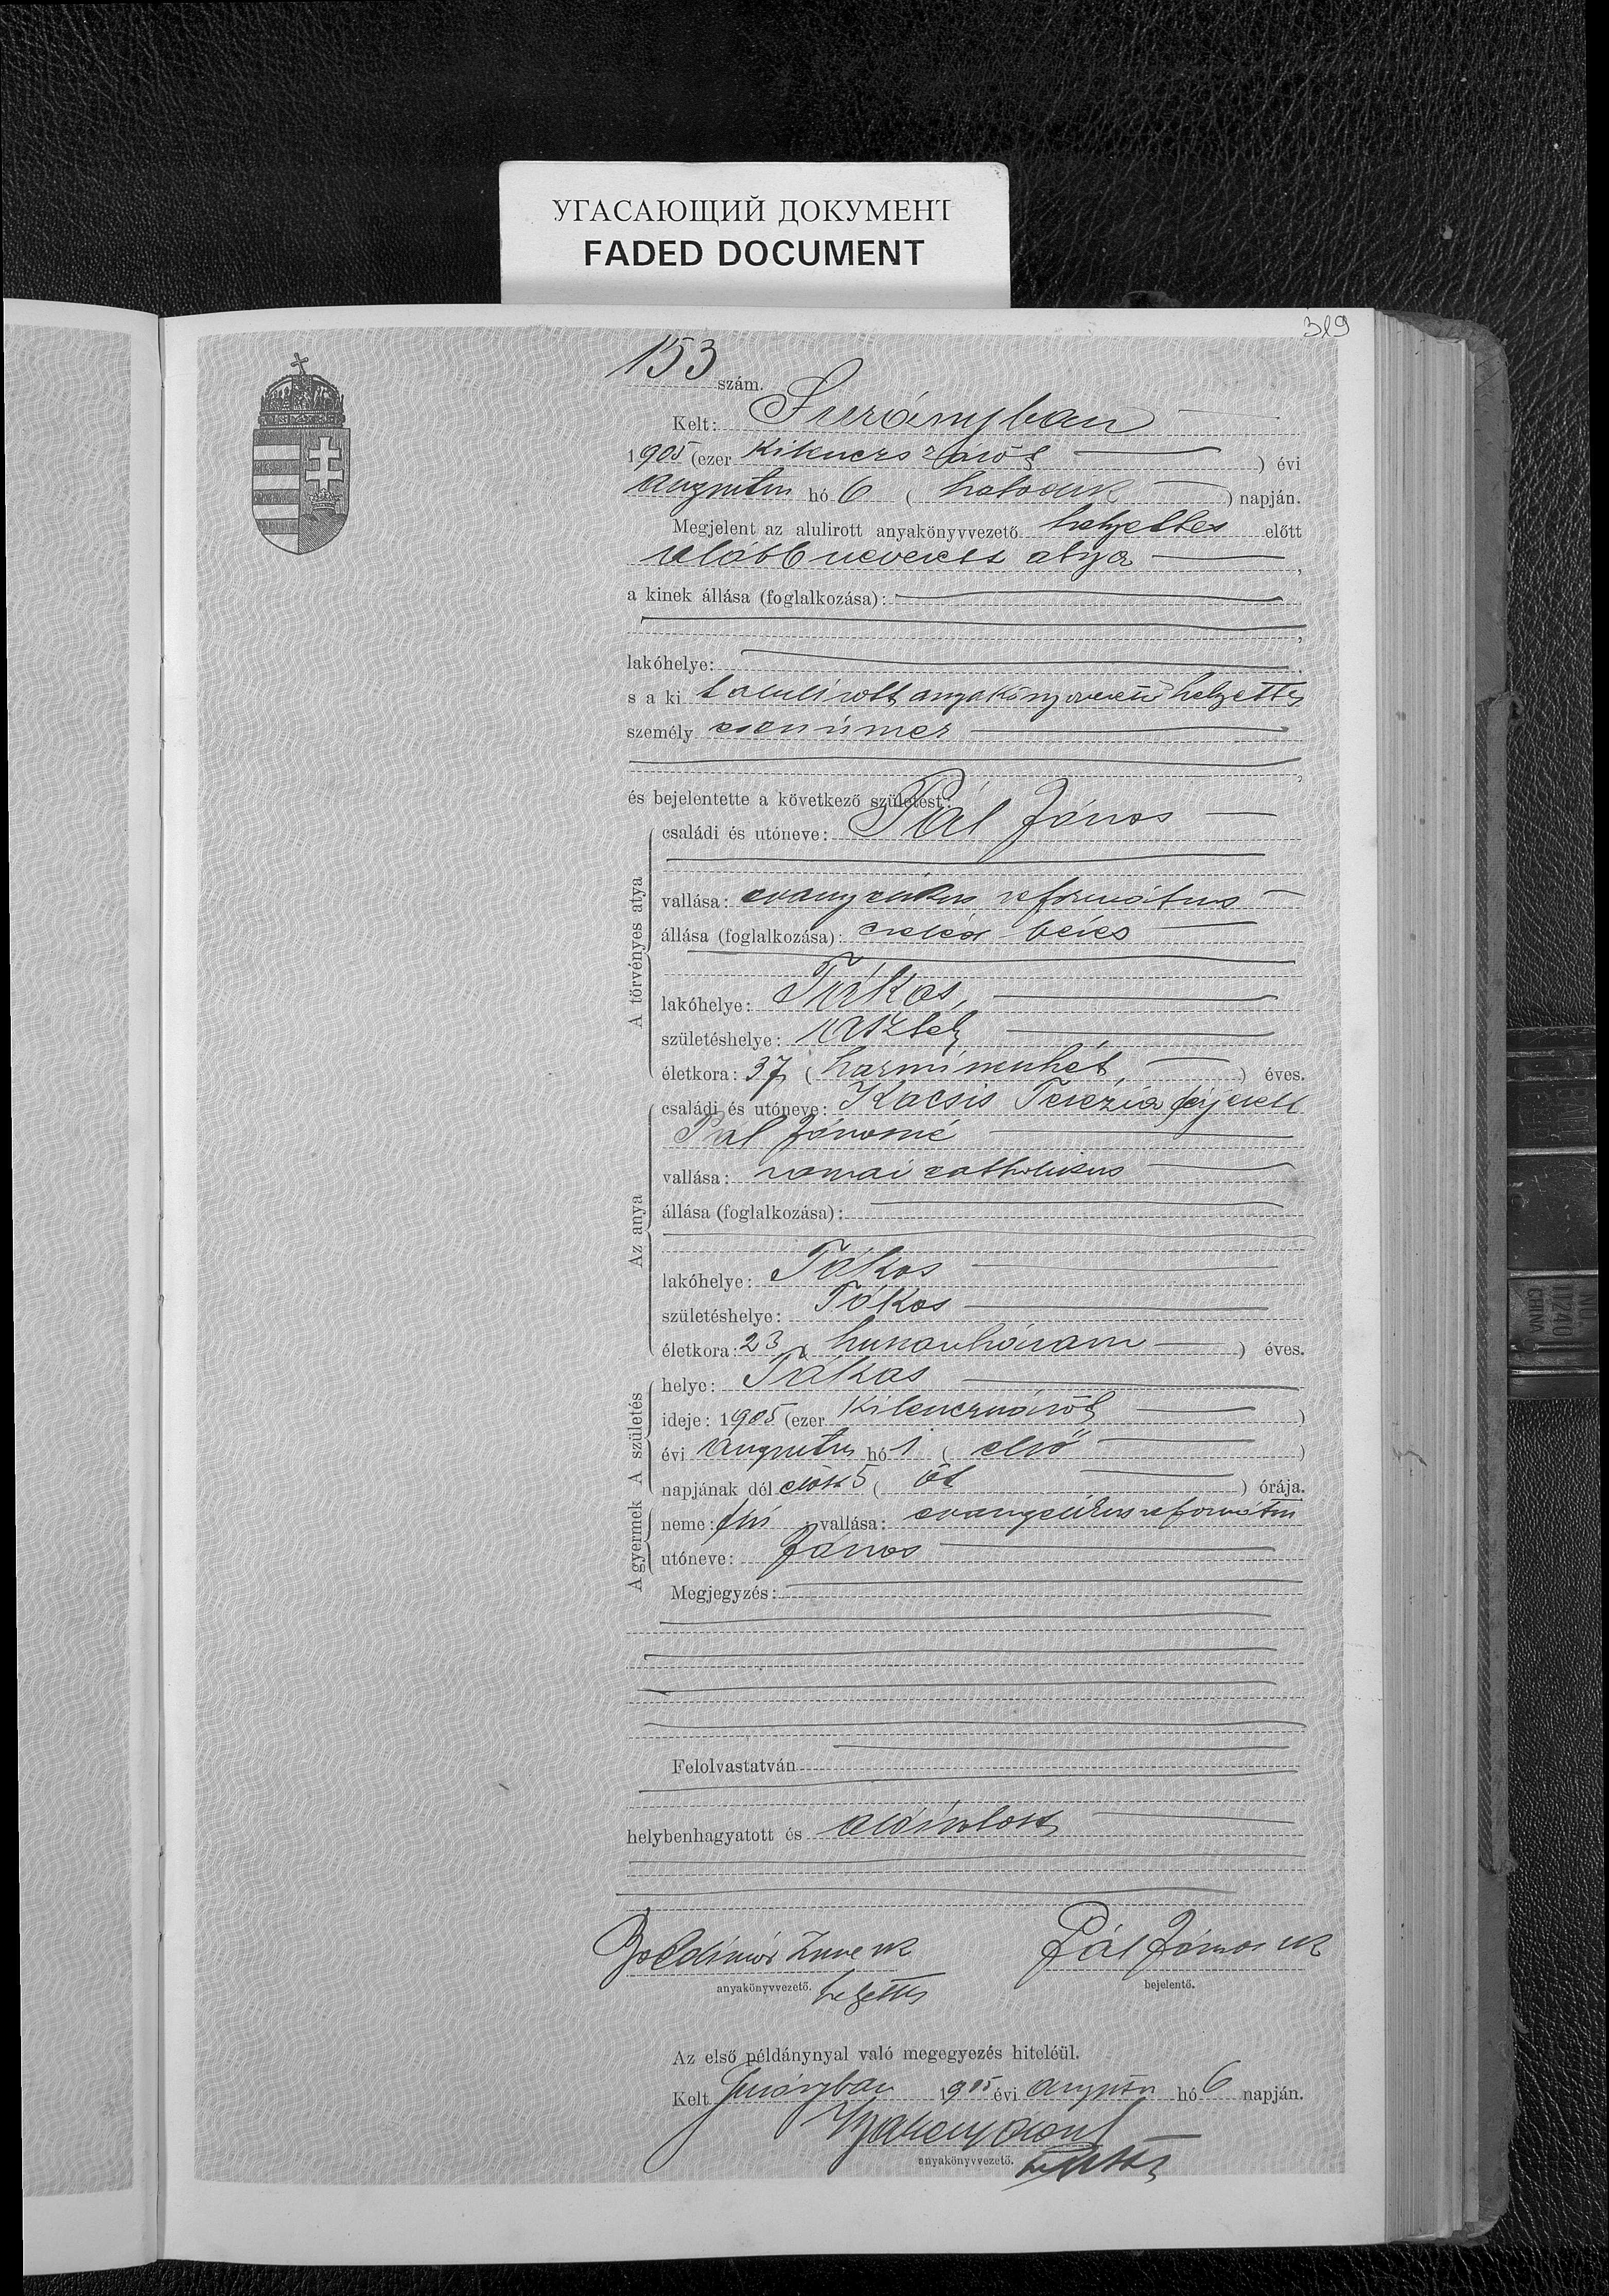 УГАСАЮЩИЙ ДОКУМЕНТ
FADED DOCUMENT
319
153 szám.
Kelt: Surányban
1905 (ezer kilenczszázöt) évi
augusztus hó 6 (hatodik) napján.
Megjelent az alulirott anyakönyvvezető helyettes előtt
alább nevezett atya,
a kinek állása (foglalkozása):
lakóhelye:
s a ki t alulírott anyakönyvvezető helyettes
személy esen ismer
és bejelentette a következő születést:
A törvényes atya
családi és utóneve: Pál János
vallása: evangelikus református
állása (foglalkozása): cseléd béres
lakóhelye: Tákos,
születéshelye:
életkora: 37 (harminczhét,) éves.
Az anya
családi és utóneve: Kacsis Terézia férjezett
Pál Jánosné
vallása: romai catholikus
állása (foglalkozása):
lakóhelye: Tákos
születéshelye: Tákos
életkora: 23 (huszonhárom) éves.
A születés
helye: Tákos
ideje: 1905 (ezer kilenczszázöt)
évi augusztus hó 1 (első)
napjának dél előtt 5 (öt) órája.
A gyermek
neme: fiú ; vallása: evangelikus református
utóneve: János
Megjegyzés:
Felolvastatván
helybenhagyatott és aláíratott
Pál János
anyakönyvvezető. helyettes
bejelentő.
Az első példánynyal való megegyezés hiteléül.
Kelt Surányban 1905 évi augusztus hó 6 napján.
anyakönyvvezető. helyettes
NO.
11240
CHINA